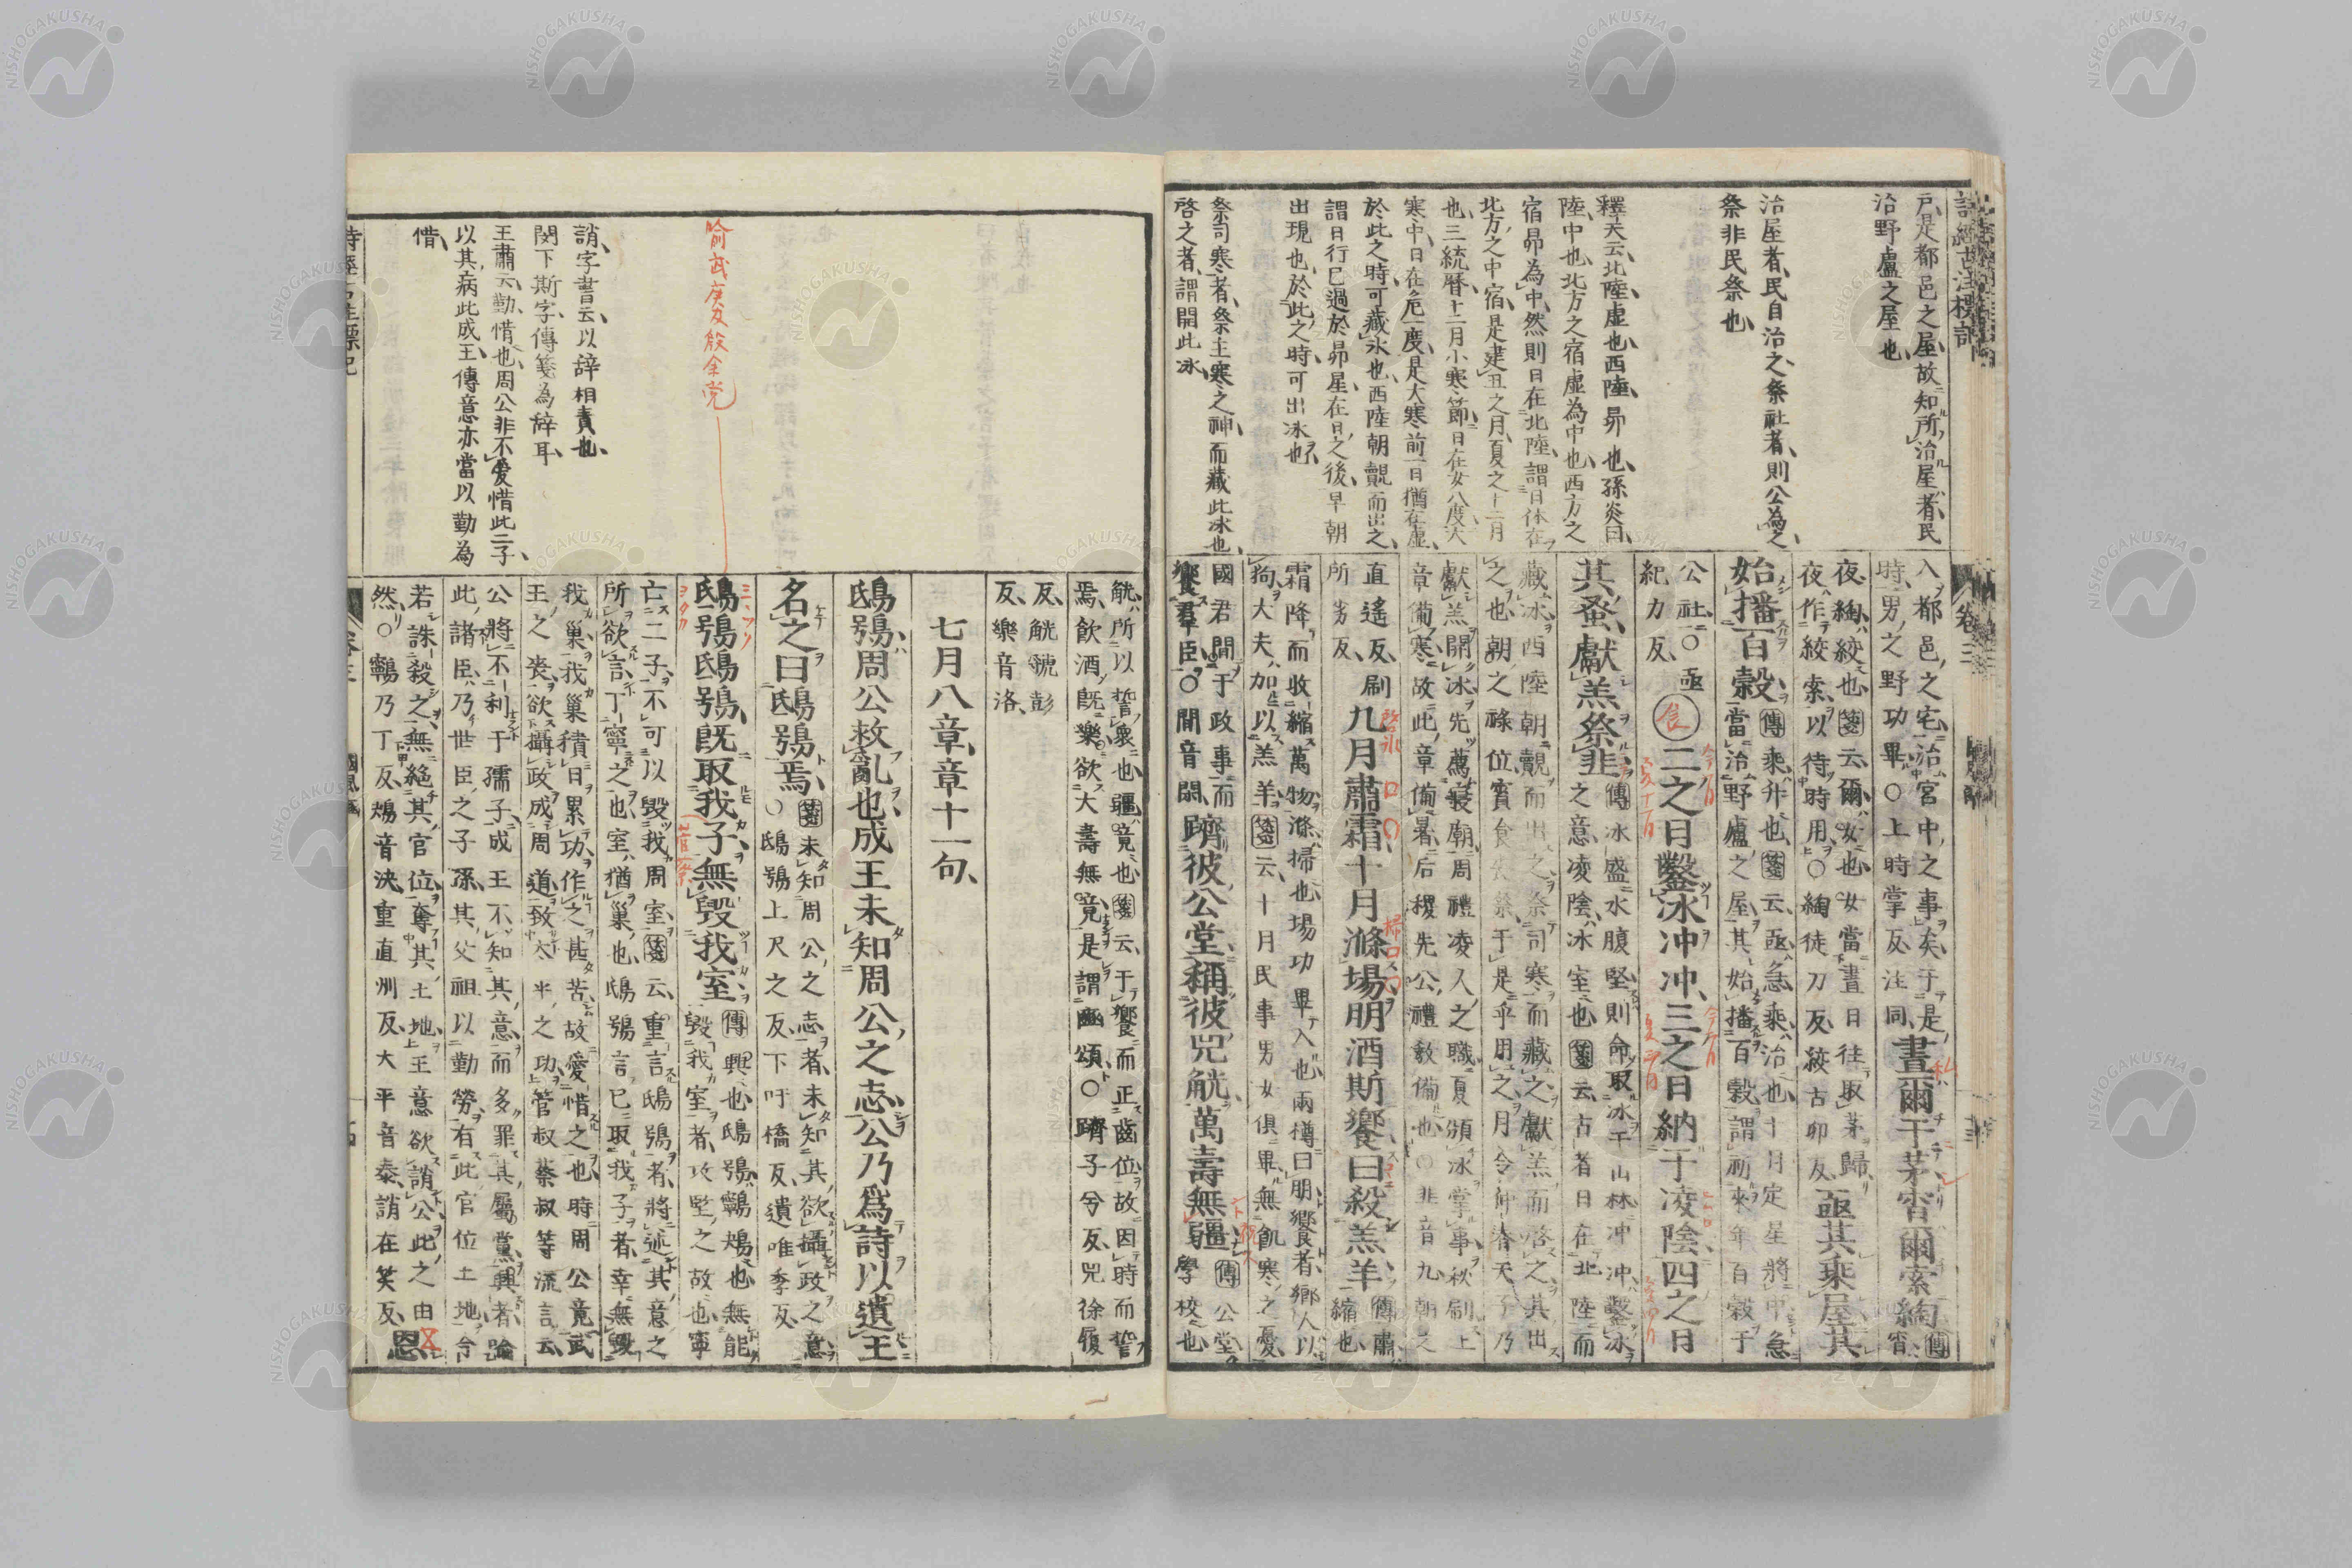 戸是都邑之屋故知所治屋者民
治野廬之屋也
治屋者民自治之祭社者則公為之
祭非民祭也
釋天云北陸虛也西陸昴也孫炎曰
陸中也北方之宿虛為中也西方之
宿昴為中然則日在北陸謂日体在
北方之中宿是建丑之月夏之十二月
也三統曆十二月小寒節日在女八度大
寒中日在危一度是大寒前一日猶在虛
於此之時可藏氷也西陸朝覿而出之
謂日行已過於昴星在日之後早朝
出現也於此之時可出氷也
祭司寒者祭主寒之神而藏此氷也
啓之者謂開此氷
入都邑之宅治宮中之事矣于是
時男之野功畢○上時掌反注同
晝爾于茅宵爾索綯傳宵
夜綯絞也箋云爾女也女當晝日往取茅歸
夜作絞索以待時用○綯徒刀反絞古卯反
亟其乘屋其
始播百穀傳乘升也箋云亟急乘治也十月定星將中急
當治野廬之屋其始播百穀謂祈來年百穀于
公社○亟
紀力反
二之日鑿冰冲冲三之日納于凌陰四之日
其蚤獻羔祭韭傳冰盛水腹堅則命取冰于山林冲冲鑿冰
之意凌陰冰室也箋云古者日在北陸而
藏冰西陸朝覿而出之祭司寒而藏之獻羔而啓之其出
之也朝之祿位賓食喪祭于是乎用之月令仲春天子乃
獻羔開冰先薦寢廟周禮凌人之職夏頒冰掌事秋刷上
章備寒故此章備暑后稷先公禮敎備也○非音九朝之
直遙反刷
所劣反
九月肅霜十月滌場朋酒斯饗曰殺羔羊傳肅
縮也
霜降而收縮萬物滌掃也場功畢入也兩樽曰朋饗者鄉人以
狗大夫加以羔羊箋云十月民事男女俱畢無飢寒之憂
國君閒于政事而
饗羣臣○閒音閑
躋彼公堂稱彼兕觥萬壽無疆傳公堂
學校也
喻武庚及殷余党
誚字書云以辞相責也
閔下斯字傳箋為辞耳
王肅云勤惜也周公非不愛惜此二子
以其病此成王傳意亦當以勤為
惜
觥所以誓衆也疆竟也箋云于饗而正齒位故因時而誓
焉飲酒旣樂欲大壽無竟是謂豳頌○躋子兮反兕徐履
反觥虢彭
反樂音洛
七月八章章十一句
鴟鴞周公救亂也成王未知周公之志公乃爲詩以遺王
名之曰鴟鴞焉箋未知周公之志者未知其欲攝政之意
○鴟鴞上尺之反下吁橋反遺唯季反
鴟鴞鴟鴞旣取我子無毀我室傳興也鴟鴞鸋鴂也無能
毀我室者攻堅之故也寧
亡二子不可以毀我周室箋云重言鴟鴞者將述其意之
所欲言丁寧之也室猶巢也鴟鴞言已取我子者幸無毀
我巢我巢積日累功作之甚苦故愛惜之也時周公竟武
王之喪欲攝政成周道致太平之功管叔蔡叔等流言云
公將不利于孺子成王不知其意而多罪其屬黨興者喻
此諸臣乃世臣之子孫其父祖以勤勞有此官位土地今
若誅殺之無絕其官位奪其土地王意欲誚公此之由
然○鸋乃丁反鴂音決重直用反大平音泰誚在笑反
恩